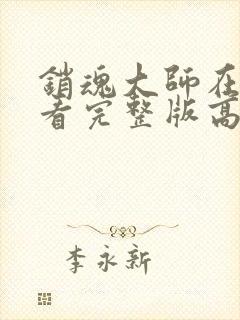 銷魂大師在
看完整版高
李永新